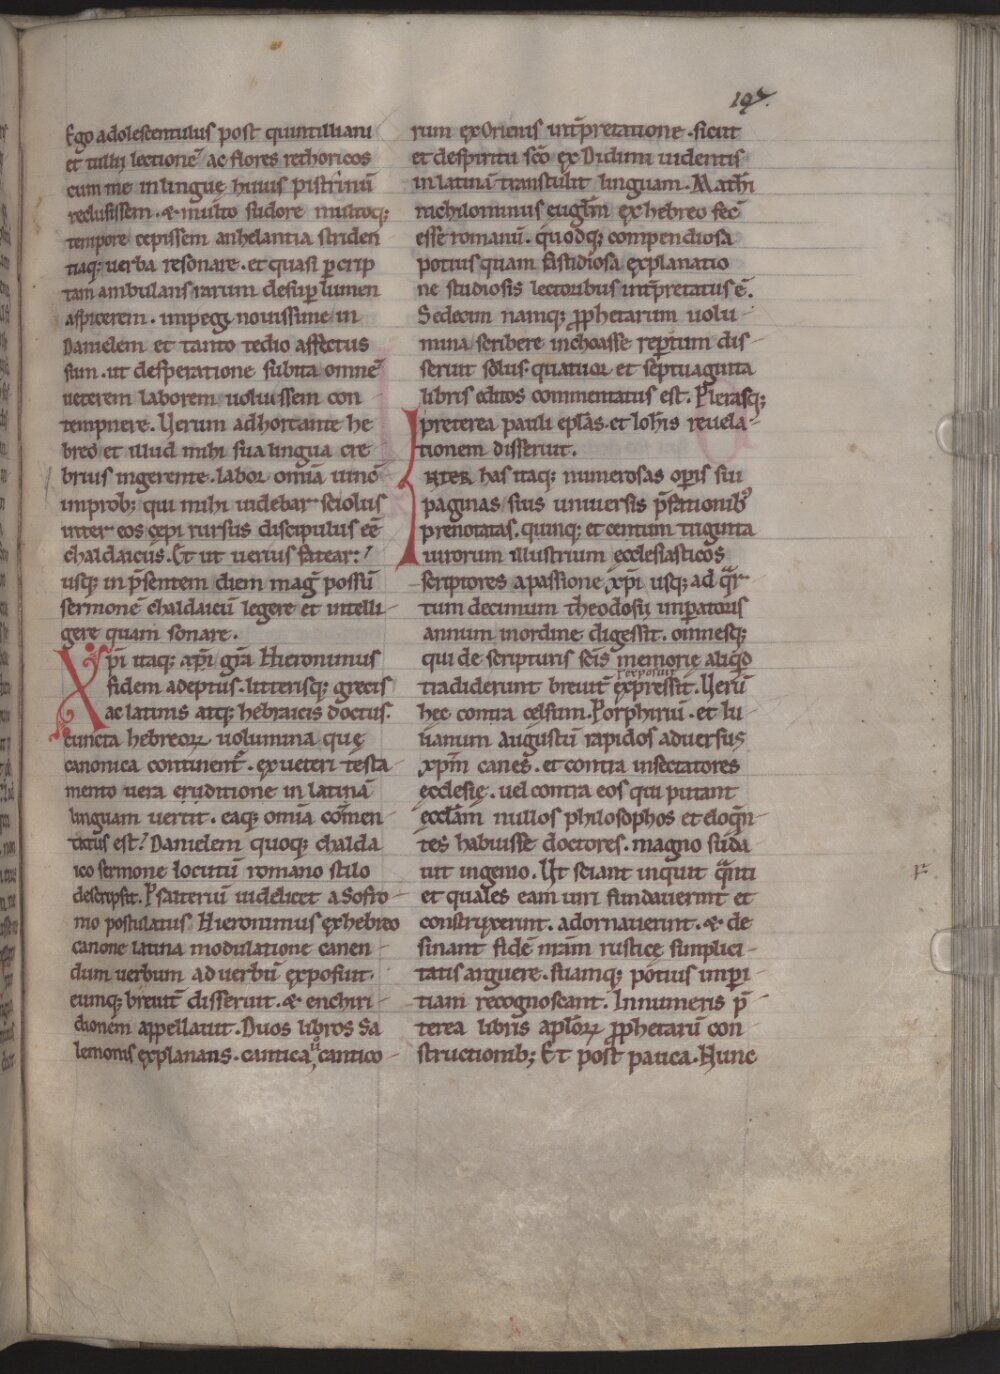 197.
Ego adolescentulus post quintiliani
et tullij lectionē ac flores rethoricos
cum me in linguę huius pistrinū
reclusissem. & multo sudore multoq;
tempore cepissem anhelantia striden
tiaq; uerba resonare. et quasi ꝑ crip
tam ambulans rarum desuꝑ lumen
aspicerem. impegi nouissime in
Danielem et tanto tedio affectus
sum. ut desperatione subita omnē
ueterem laborem uoluissem con-
tempnere. Verum adhortante he
breo et illud mihi sua lingua cre
brius ingerente. labor omīa uincī
improb; qui mihi uidebar sciolus
inter eos cępi rursus discipulus eē
chaldaicus. Et ut uerius fatear:
usq; in p̄sentem diem magī possū
sermonē chaldaicū legere et intelli-
gere quam sonare.
Xpī itaq; apī grā Hieronimus
fidem adeptus. litterisq; grecis
ac latinis atq; hebraicis doctus.
cuncta hebreoꝝ uolumina quę
canonica continent᷑. ex ueteri testa
mento uera eruditione in latinā
linguam uertit. eaq; omīa com̄en
tatus est. Danielem quoq; chalda
ico sermone locutū romano stilo
descripsit. Psalteriū uidelicet a Sofro-
nio postulatus Hieronimus ex hebreo
canone latina modulatione canen-
dum uerbum ad uerbū exposuit.
eumq; breuit̄ disseruit. & enchiri-
dionem appellauit. Duos libros Sa
lemonis explanans. cantica ů cantico-
rum ex Orienis int̄pretatione. sicut
et de spiritu scō ex Didimi uidentis
in latinā transtulit linguam. Mathī
nichilominus euglm̄ ex hebreo fec̄
esse romanū. quodq; compendiosa
potius quam fastidiosa explanatio
ne studiosis lectoribus int̄pretatus ē.
Sedecim namq; ꝓphetarum uolu-
mina scribere inchoasse reꝑtum dis-
seruit solus. quatuor et septuaginta
libris editos commentatus est. Plerasq;
preterea pauli epl̄as. et Ioh̄is reuela-
tionem disseruit.
Inter has itaq; numerosas oꝑis sui
paginas suis uniuersis p̄fationib;
prenotatas. quinq; et centum triginta
uirorum illustrium ecclesiasticos
scriptores a passione xp̄i usq; ad qr-
tum decimum theodosii inꝑatoris
annum in ordine digessit. omnesq;
qui de scripturis scīs memorie aliqd
ł exposuit
tradiderunt breuit̄ expressit. Verū
hec contra celsum. Porphiriū. et Iu
lianum augustū rapidos aduersus
xpm̄ canes. et contra insectatores
ecclesię. uel contra eos qui putant
eccl̄am nullos philosophos et eloqn-
tes habuisse doctores. magno suda
uit ingenio. Ut sciant inquit qnti
et quales eam uiri fundauerint et
construxerint. adornauerint. & de-
sinant fidē nr̄am rustice simplici-
tatis arguere. suamq; potius inꝑi-
tiam recognoscant. Innumeris p̄-
terea libris apl̄oꝝ ꝓphetarū con-
structionib; Et post pauca. Hunc